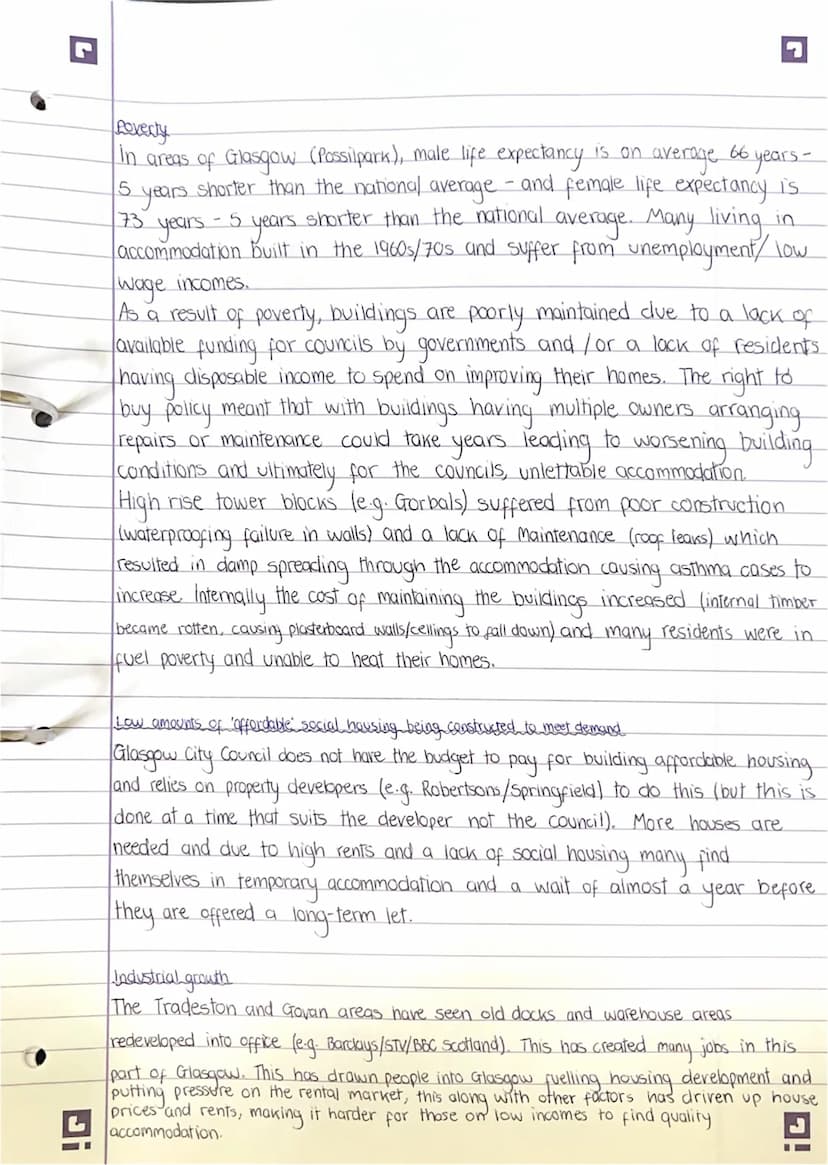 Poverty
In areas of Glasgow (Possilpark), male life expectancy is on average 66 years -
5 years shorter than the national average - and female life expectancy is
73 years - 5 years shorter than the national average. Many living in
accommodation built in the 1960s/70s and suffer from unemployment/ low
wage incomes.
As a result of poverty, buildings are poorly maintained due to a lack of
available funding for councils by governments and /or a lack of residents
having disposable income to spend on improving their homes. The right to
buy policy meant that with buildings having multiple owners arranging
repairs or maintenance could take years leading to worsening building
conditions and ultimately for the councils, unlettable accommodation.
High rise tower blocks (e.g. Gorbals) suffered from poor construction
(waterproofing failure in walls) and a lack of Maintenance (roof leaks) which
resulted in damp spreading through the accommodation causing asthma cases to
increase. Internally the cost of maintaining the buildings increased (internal timber
became rotten, causing plasterboard walls/ceilings to fall down) and many residents were in
fuel poverty and unable to heat their homes.
Low amounts of 'affordable' social housing being constructed to meet demand
Glasgow City Council does not have the budget to pay for building affordable housing
and relies on property developers (e.g. Robertsons/Springfield) to do this (but this is
done at a time that suits the developer not the council). More houses are
needed and due to high rents and a lack of social housing many find
themselves in temporary accommodation and a wait of almost a year before
they are offered a long-term let.
Industrial growth
The Tradeston and Govan areas have seen old docks and warehouse areas
redeveloped into office (e.g. Barclays/STV/BBC Scotland). This has created many jobs in this
part of Glasgow. This has drawn people into Glasgow fuelling housing development and
putting pressure on the rental market, this along with other factors has driven up house
prices and rents, making it harder for those on low incomes to find quality
accommodation.